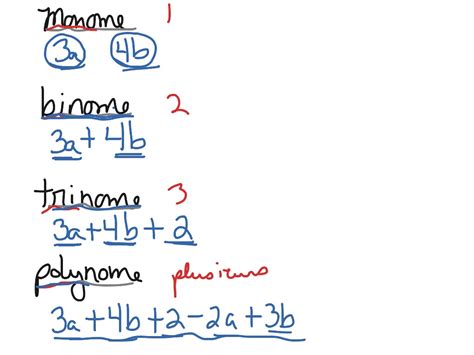 Monome 1
3a 4b
binome 2
3a + 4b
trinome 3
3a + 4b + 2
polynome plusieurs
3a + 4b + 2 - 2a + 3b